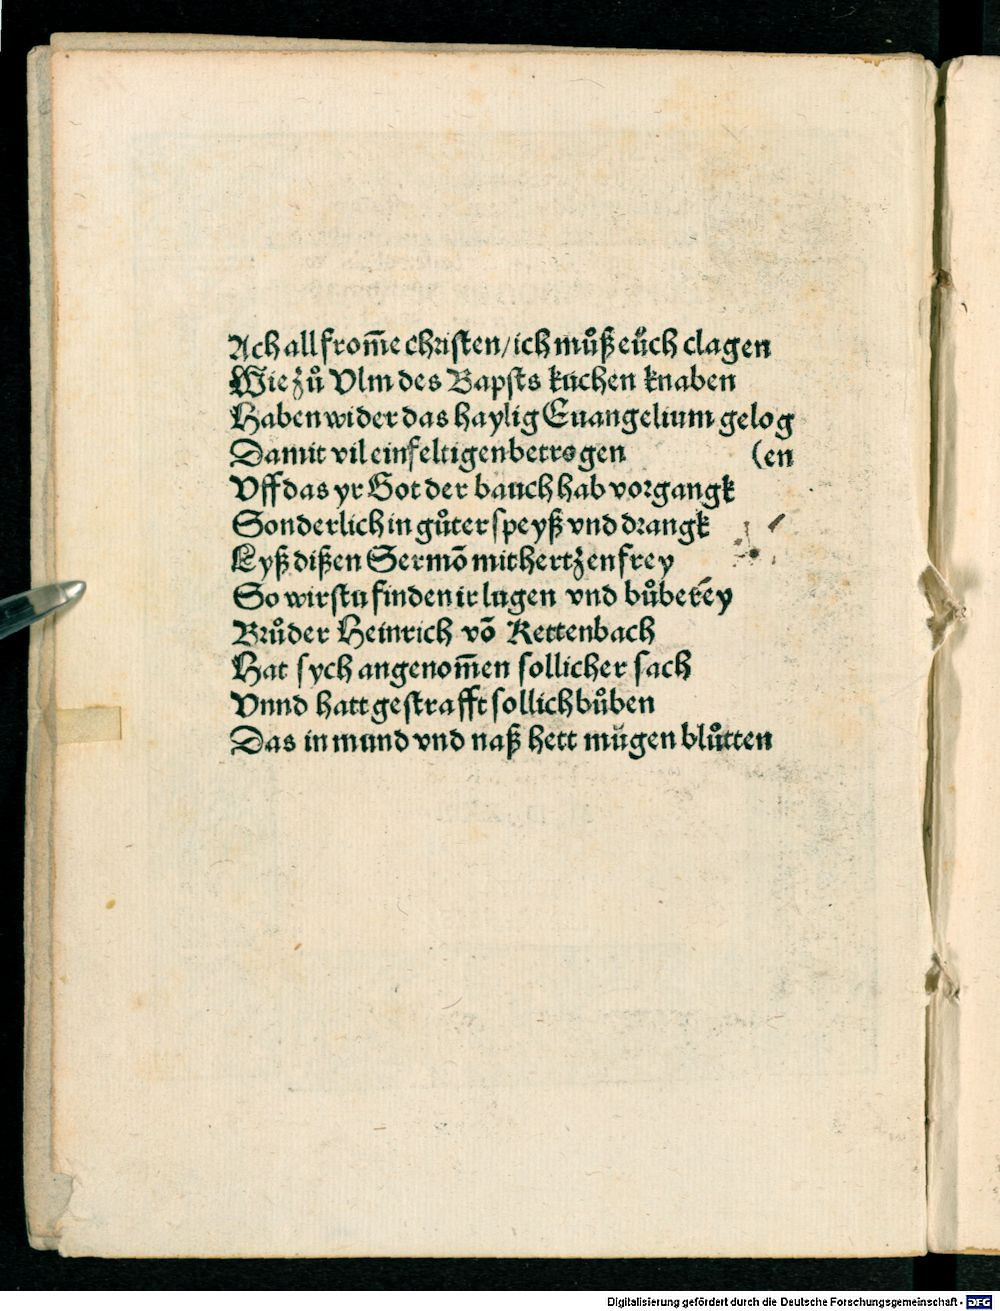 Ach all from̅e christen/ ich mů̊ß eü̊ch clagen
Wie zů Vlm des Bapsts kuchen knaben
Haben wider das haylig Euangelium gelog
Damit vil einfeltigen betrogen (en
Vff das yr Got der bauch hab vorgangk
Sonderlich in gůter speyß vnd drangk
Lyß dißen Sermō mit hertzen frey
So wirstu finden ir lugen vnd bůberēy
Brůder Heinrich vō Kettenbach
Hat sych angenom̅en sollicher sach
Vnnd hatt gestrafft sollich bůben
Das in mund vnd naß hett mügen blůtten
Digitalisierung gefördert durch die Deutsche Forschungsgemeinschaft - DFG